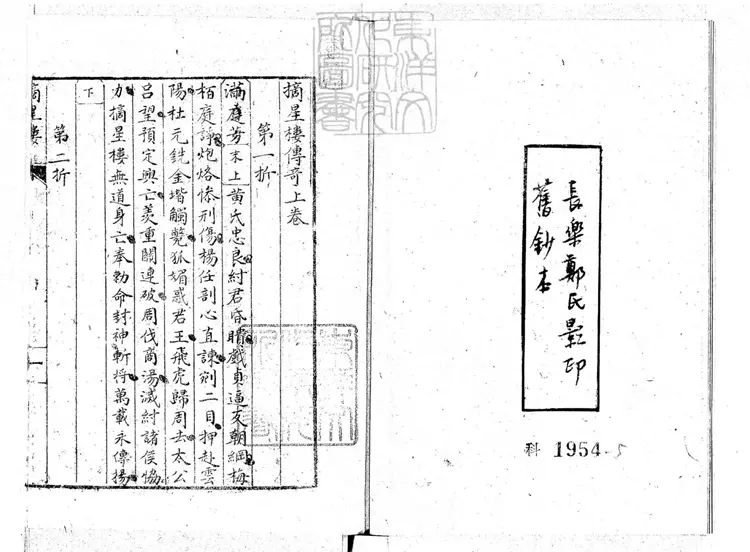 長樂鄭氏影印
舊鈔本
科 1954-5
東洋文
化研究
所圖書
摘星樓傳奇上卷
第一折
滿庭芳末上黃氏忠良紂君昏聵戲貞逼反朝綱梅
栢庭諍炮烙慘刑傷楊任剖心直諫剜二目押赴雲
陽杜元銑金堦觸斃狐媚惑君王飛虎歸周去太公
呂望預定興亡羨重關連破周伐商湯滅紂諸侯恊
力摘星樓無道身亡奉勅命封神斬將萬載永傳揚
下
第二折
摘星樓